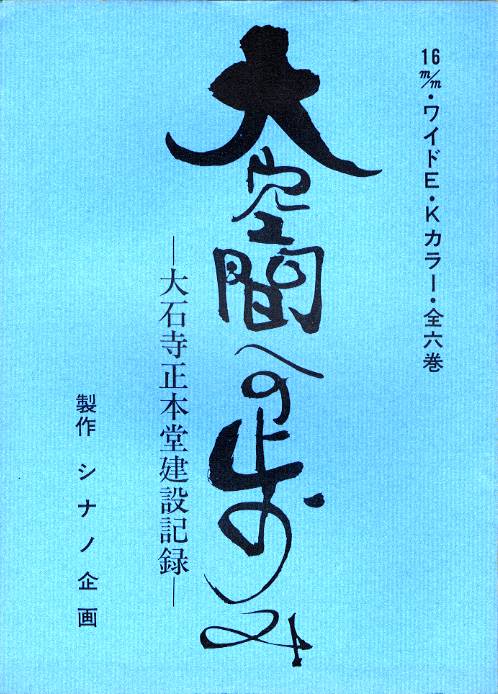 16m/m・ワイドE・Kカラー・全六巻
大空間への歩み
―大石寺正本堂建設記録―
製作 シナノ企画